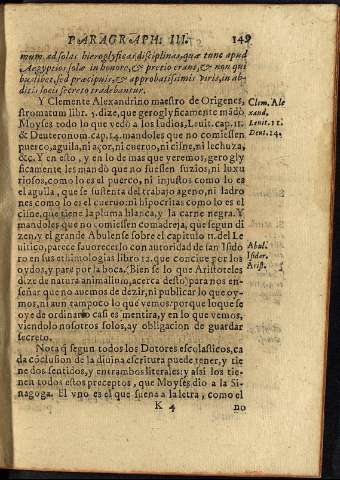 PARAGRAPH. III. 149
mum. ad solas hieroglyficas disciplinas, quæ tunc apud
Aegyptios solæ in honore, & pretio erant, & non qui
buslibet, sed præcipuis, & approbatissimis viris, in ab-
ditis locis secreto tradebantur.
Y Clemente Alexandrino maestro de Origenes,
stromatum libr. 5. dize, que geroglyficamente mãdò
Moyses todo lo que vedò a los Iudios, Leuit. cap. 11.
& Deuteronom. cap. 14. mandoles que no comiessen
puerco, aguila, ni açor, ni cueruo, ni cisne, ni lechuza,
&c. Y en esto, y en lo de mas que veremos, gerogly
ficamente les mandò que no fuessen suzios, ni luxu
riosos, como lo es el puerco, ni injustos como lo es
el aguila, que se sustenta del trabajo ageno, ni ladro
nes como lo es el cueruo: ni hipocritas como lo es el
cisne, que tiene la pluma blanca, y la carne negra. Y
mandoles que no comiessen comadreja, que segun di
zen, y el grande Abulense sobre el capitulo 11. del Le
uitico, parece fauorecerlo con autoridad de san Isido
ro en sus ethimologias libro 12. que conciue por los
oydos, y pare por la boca. (Bien se lo que Aristoteles
dize de natura animalium, acerca desto) para nos en-
señar que no auemos de dezir, ni publicar lo que oy-
mos, ni aun tampoco lo que vemos: porque loque se
oye de ordinario casi es mentira, y en lo que vemos,
viendolo nosotros solos, ay obligacion de guardar
secreto.
Nota q̃ segun todos los Dotores escolasticos, ca
da cõclusion de la diuina escritura puede tener, y tie
ne dos sentidos, y entrambos literales: y assi los tie-
nen todos estos preceptos, que Moyses dio a la Si-
nagoga. El vno es el que suena a la letra, como el
K 4 no
Clem. Ale
xand.
Leuit. 11.
Deut. 14.
Abul.
Isidor.
Arist.